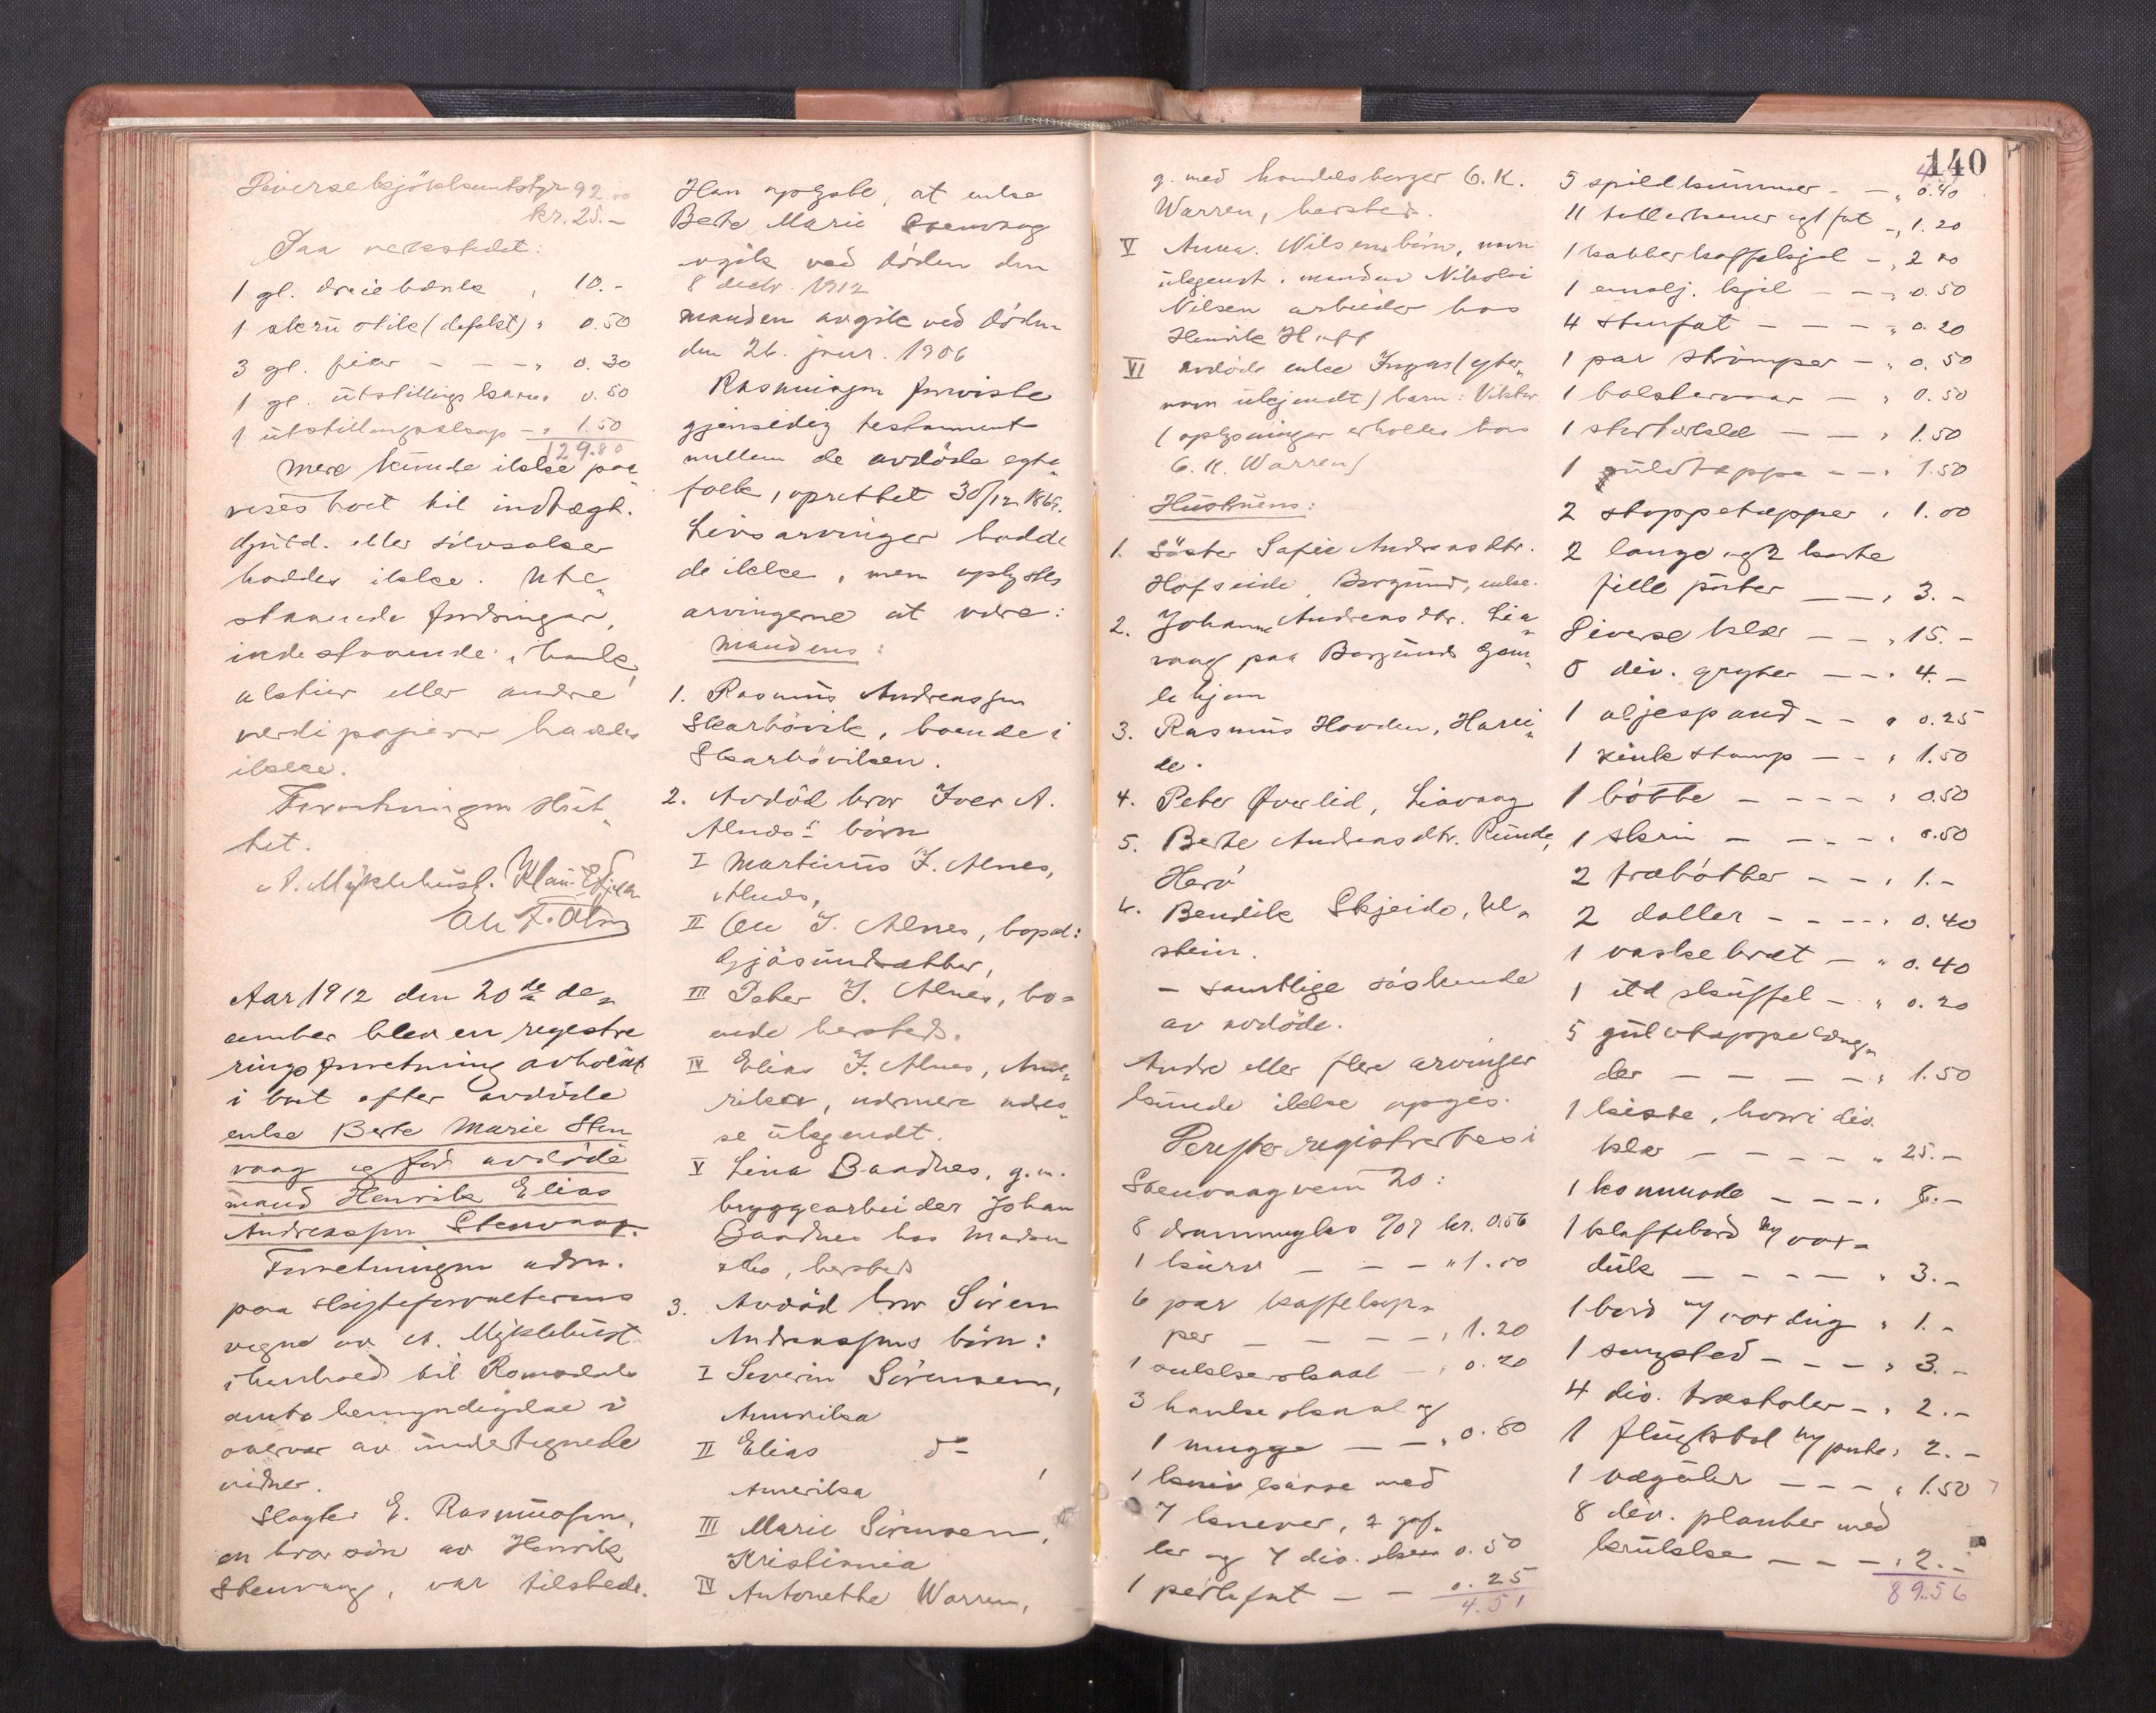 Diverse kjökkenutstyr 92.00
kr. 25.-
Paa verkstedet:
1 gl. dreiebænk " 10.-
1 skrustik (defekt) " 0.50
3 gl. filer - - - " 0.30
1 gl. utstillingskasse " 0.50
1 utstillingsskap - " 1.50
129.80
Mere kunde ikke paa
vises boet til indtægt.
Guld. eller sølvsaker
haddes ikke. Ute
staaende fordringer,
indestaaende i bank,
aktier eller andre
verdipapirer haddes
ikke.
Forretningen slut
tet.
A. Myklebust.
Aar 1912 den 20de de
cember blev en registre
ringsforretning avholdt
i boet efter avdöde
enke Berte Marie Sten
vaag og för avdöde
mand Henrik Elias
Andreassen Stenvaag.
Forretningen adm.
paa skifteforvalterens
vegne av A. Myklebust
i henhold til Romsdals
amts bemyndigelse i
overvær av undertegnede
vidner.
Slagter E. Rasmussen,
en brorsön av Henrik
Stenvaag, var tilstede.
Han oplyste, at enke
Berte Marie Stenvaag
avgik ved döden den
8 decbr. 1912
manden avgik ved döden
den 26. janr. 1906
Rasmussen foreviste
gjensidig testament
mellem de avdöde egte
folk, oprettet 30/12 1869.
Livsarvinger hadde
de ikke, men oplystes
arvingerne at være:
Mandens:
1. Rasmus Andreassen
Skarbövik, boende i
Skarböviken.
2. Avdöd bror Iver A.
Alnes's börn
I Martinus I. Alnes,
Alnes,
II Ole I. Alnes, bopæl:
Gjösundsætter,
III Peter I. Alnes, bo=
ende hersteds.
IV Elias I. Alnes, Ame
rika, nærmere adres
se ukjendt.
V Lina Baadnes, g.m.
bryggearbeider Johan
Baadnes hos
hersteds
3. Avdöd bror Sören
Andreassens börn:
I Severin Sörensen,
Amerika
II Elias do
Amerika
III Marie Sörensen,
Kristiania
IV Antonette Warren,
140
g. med handelsborger C. K.
Warren, hersteds.
V Anna Nilsens börn, navn
ukjendt. manden Nikolai
Nilsen arbeider hos
Henrik Hoff
VI avdöde enke Ingas (efter
navn ukjendt) barn: Viktor
(oplysninger erholdes hos
C. K. Warren)
Hustruens:
1. Söster Sofie Andreasdtr.
Hofseide, Borgund, enke.
2. Johanne Andreasdtr. Lia
vaag paa Borgunds gam
le hjem
3. Rasmus Hovden, Harei
de.
4. Peter Överlid, Liavaag
5. Berte Andreasdtr. Runde,
Herö
6. Bendik Skjeide, Ul
stein.
- samtlige söskende
av avdöde.
Andre eller flere arvinger
kunde ikke opgis.
Derefter registrertes i
Stenvaagveien 20:
8 dramneglas 0/07 kr. 0.56
1 kurv - - - " 1.00
6 par kaffekop
per - - - - " 1.20
1 sukkerskaal - " 0.20
3 hankeskaal og
1 mugge - - " 0.80
1 knivkasse med
7 knever, 2 gaf
ler og 7 div. skeer 0.50
1 perlefat - - 0.25
4.51
5 spildkummer - - " 0.40
11 tallerkener og 1 fat - " 1.20
1 kobberkaffekjel - " 2.00
1 emalj. kjel - - - " 0.50
4 stenfat - - - - " 0.20
1 par strömper - " 0.50
1 bolstervaar - " 0.50
1 - - " 1.50
1 gulvtæppe - - " 1.50
2 stoppetæpper " 1.00
2 lange og 2 korte
fille - - " 3.-
Diverse klær - - " 15.-
8 div. gryter - - " 4.-
1 oljespand - - " 0.25
1 zinkstamp - - " 1.50
1 bötte - - - - " 0.50
1 skrin - - - - " 0.50
2 træbötter - - " 1.-
2 daller - - - - " 0.40
1 vaskebræt - " 0.40
1 ildskuffel - " 0.20
5 gulvtæppelæng
der - - - - - " 1.50
1 kiste, hvori div.
klær - - - - " 25.-
1 kommode - - - " 8.-
1 klaffebord m/ vox=
duk - - - - " 3.-
1 bord m/ voxdug " 1.-
1 sengsted - - - " 3.-
4 div. træstoler - " 2.-
1 flugtstol m/ pute " 2.-
1 vægur - - - " 1.50
8 div. planter med
krukker - - - " 2.-
89.56